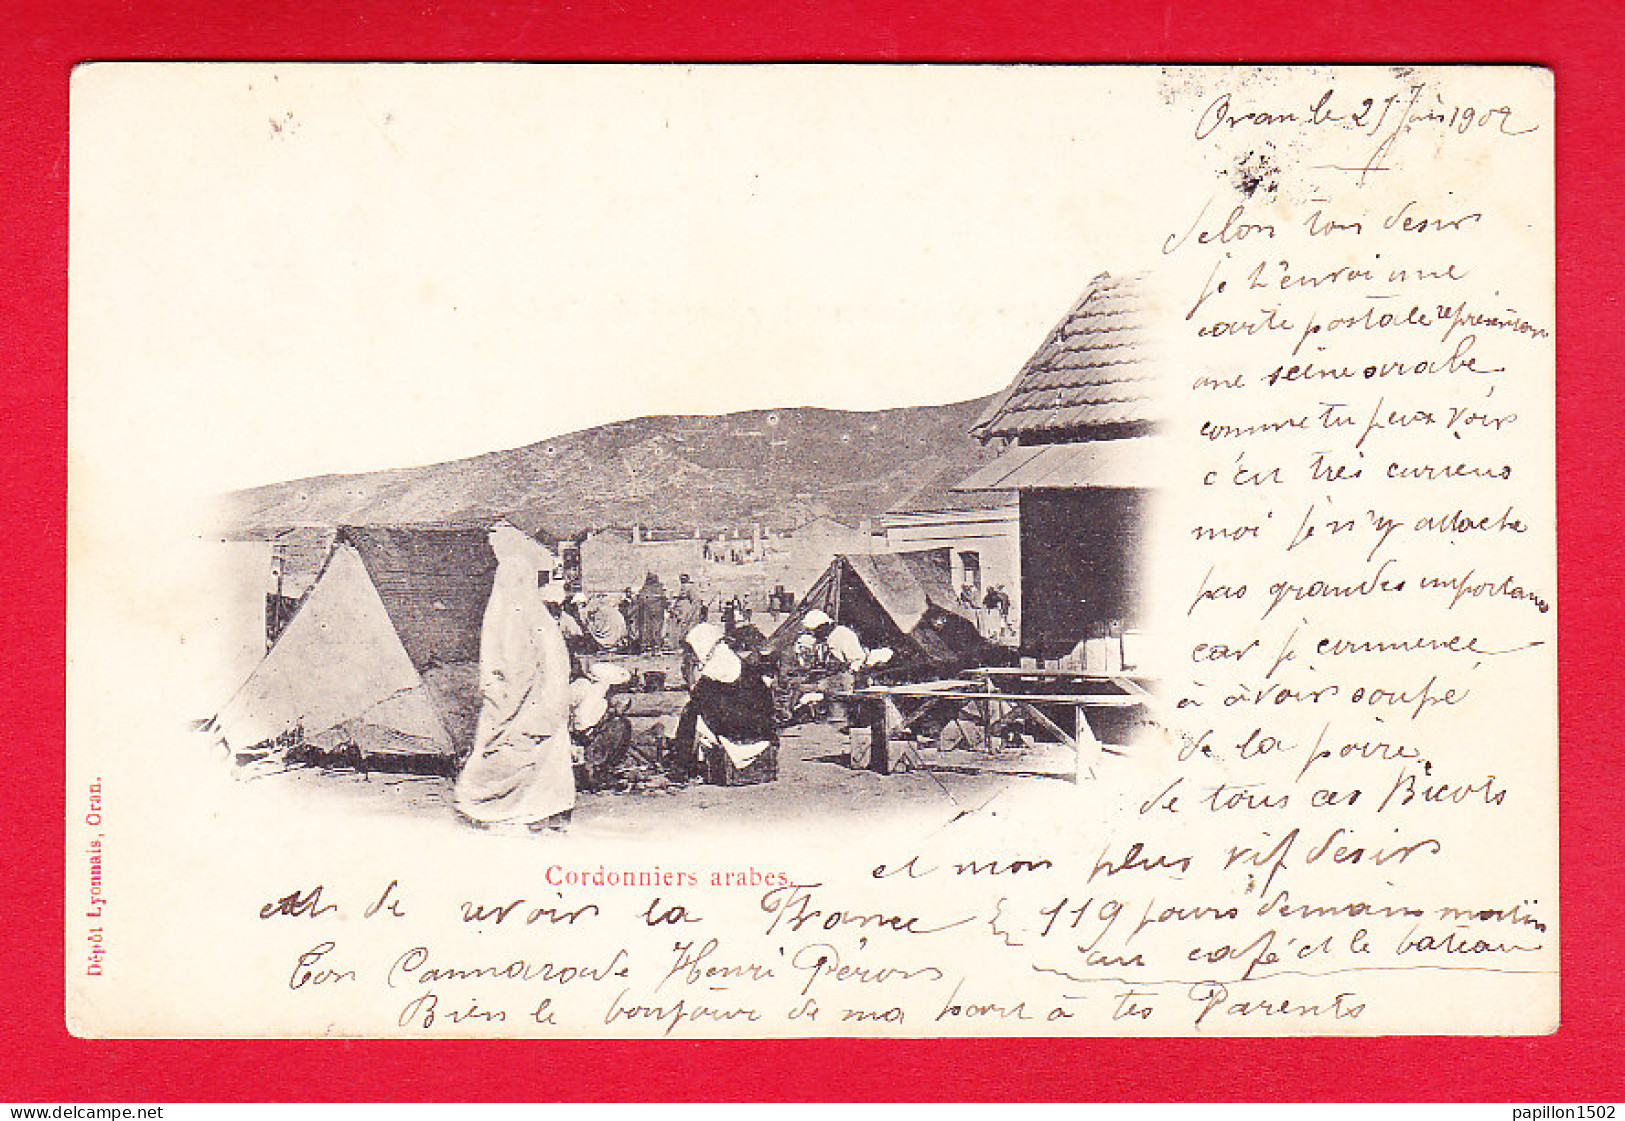 Oran le 25 Juin 1902
Selon ton desir
je t'envoi une
carte postale représentan
une scène arabe
comme tu peux voir
c'en très curieus
moi je n'y attache
pas grandes importance
car je commence
à avoir soupé
de la poire
de tous ces Bicots
et mon plus vif désir
Cordonniers arabes.
est de revoir la France
119 jours demain matin
au café et le bateau
Ton Cammarade Henri Péron
Bien le bonjour de ma part à tes Parents
Dépôt Lyonnais, Oran.
delcampe.net
papillon1502